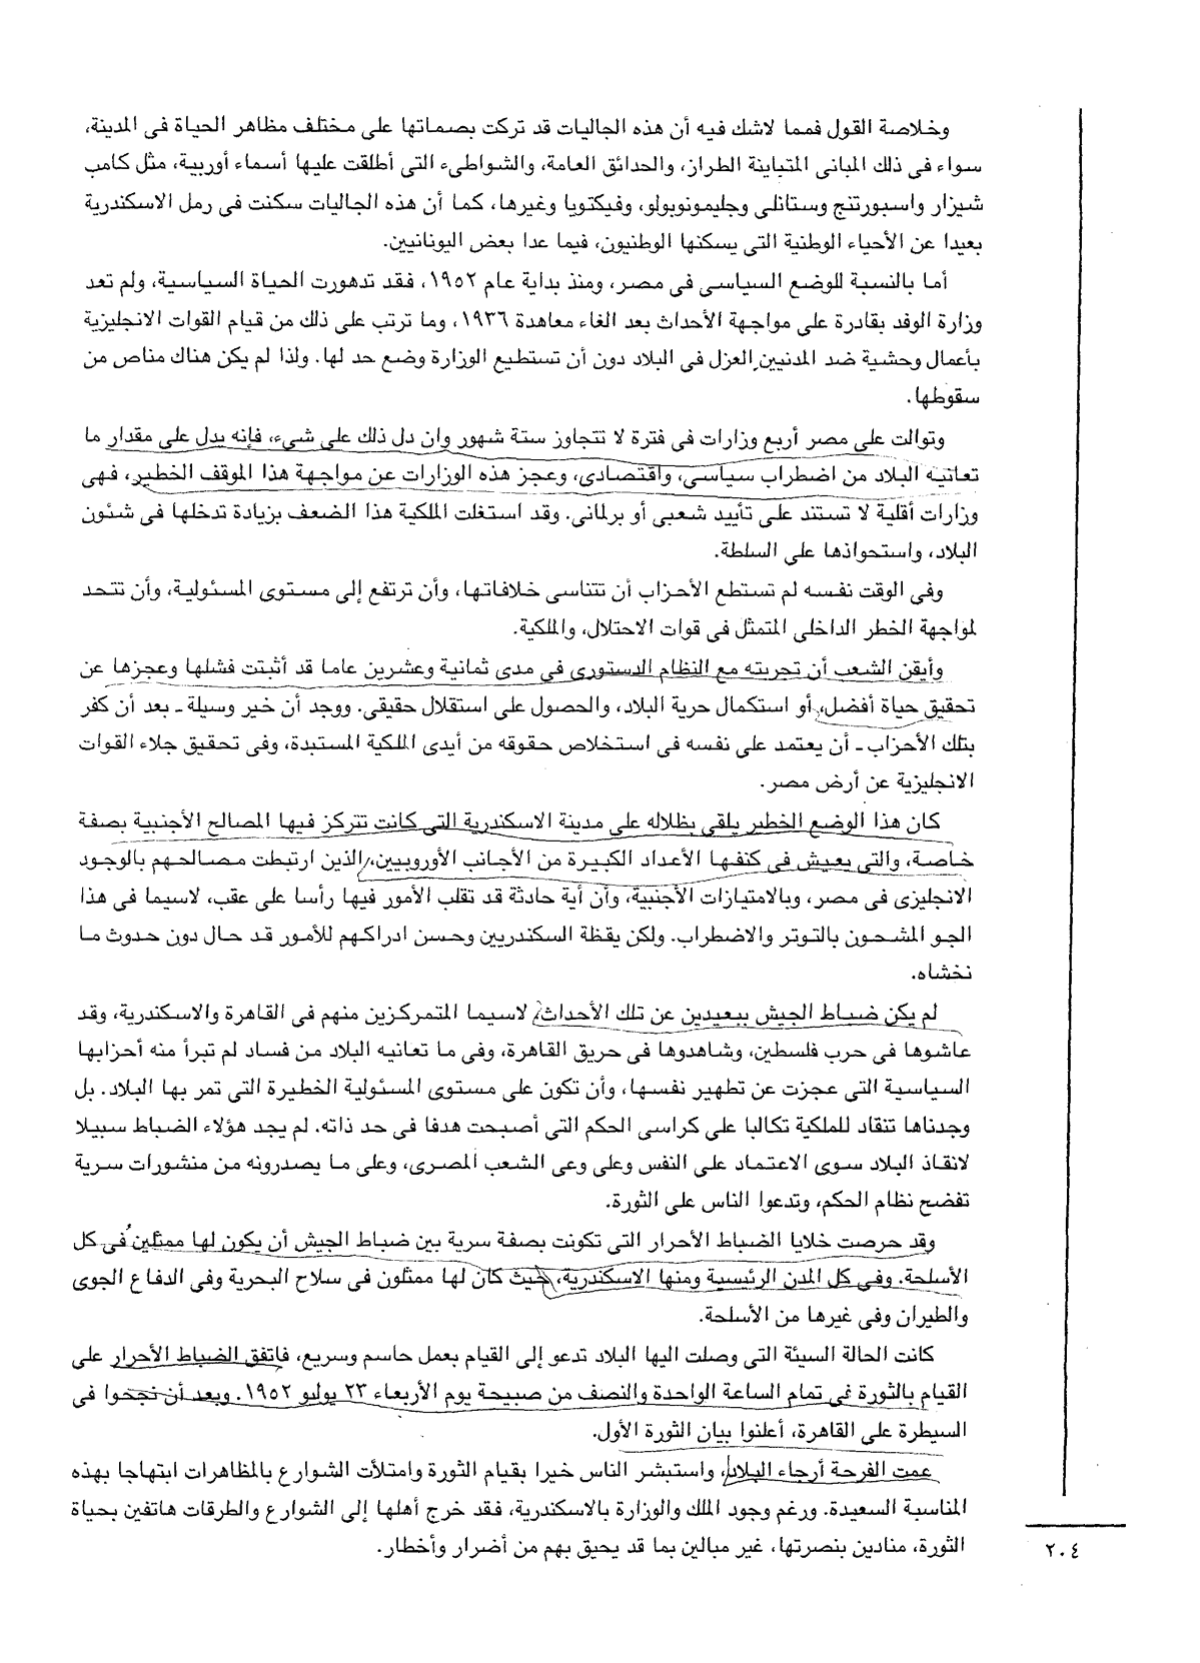 وخلاصة القول فمما لاشك فيه أن هذه الجاليات قد تركت بصماتها على مختلف مظاهر الحياة فى المدينة،
سواء فى ذلك المبانى المتباينة الطراز، والحدائق العامة، والشواطىء التى أطلقت عليها أسماء أوربية، مثل كامب
شيزار واسبورتنج وستانلى وجليمونوبولو، وفيكتويا وغيرها، كما أن هذه الجاليات سكنت فى رمل الاسكندرية
بعيدا عن الأحياء الوطنية التى يسكنها الوطنيون، فيما عدا بعض اليونانيين.
أما بالنسبة للوضع السياسى فى مصر، ومنذ بداية عام ١٩٥٢، فقد تدهورت الحياة السياسية، ولم تعد
وزارة الوفد بقادرة على مواجهة الأحداث بعد الغاء معاهدة ١٩٣٦، وما ترتب على ذلك من قيام القوات الانجليزية
بأعمال وحشية ضد المدنيين العزل فى البلاد دون أن تستطيع الوزارة وضع حد لها. ولذا لم يكن هناك مناص من
سقوطها.
وتوالت على مصر أربع وزارات فى فترة لا تتجاوز ستة شهور وان دل ذلك على شىء، فإنه يدل على مقدار ما
تعانيه البلاد من اضطراب سياسى، واقتصادى، وعجز هذه الوزارات عن مواجهة هذا الموقف الخطير، فهى
وزارات أقلية لا تستند على تأييد شعبى أو برلمانى. وقد استغلت الملكية هذا الضعف بزيادة تدخلها فى شئون
البلاد، واستحواذها على السلطة.
وفى الوقت نفسه لم تستطع الأحزاب أن تتناسى خلافاتها، وأن ترتفع إلى مستوى المسئولية، وأن تتحد
لمواجهة الخطر الداخلى المتمثل فى قوات الاحتلال، والملكية.
وأيقن الشعب أن تجربته مع النظام الدستورى فى مدى ثمانية وعشرين عاما قد أثبتت فشلها وعجزها عن
تحقيق حياة أفضل، أو استكمال حرية البلاد، والحصول على استقلال حقيقى. ووجد أن خير وسيلة ـ بعد أن كفر
بتلك الأحزاب ـ أن يعتمد على نفسه فى استخلاص حقوقه من أيدى الملكية المستبدة، وفى تحقيق جلاء القوات
الانجليزية عن أرض مصر.
كان هذا الوضع الخطير يلقى بظلاله على مدينة الاسكندرية التى كانت تتركز فيها المصالح الأجنبية بصفة
خاصة، والتى يعيش فى كنفها الأعداد الكبيرة من الأجانب الأوروبيين، الذين ارتبطت مصالحهم بالوجود
الانجليزى فى مصر، وبالامتيازات الأجنبية، وأن أية حادثة قد تقلب الأمور فيها رأسا على عقب، لاسيما فى هذا
الجو المشحون بالتوتر والاضطراب. ولكن يقظة السكندريين وحسن ادراكهم للأمور قد حال دون حدوث ما
نخشاه.
لم يكن ضباط الجيش ببعيدين عن تلك الأحداث، لاسيما المتمركزين منهم فى القاهرة والاسكندرية، وقد
عاشوها فى حرب فلسطين، وشاهدوها فى حريق القاهرة، وفى ما تعانيه البلاد من فساد لم تبرأ منه أحزابها
السياسية التى عجزت عن تطهير نفسها، وأن تكون على مستوى المسئولية الخطيرة التى تمر بها البلاد. بل
وجدناها تنقاد للملكية تكالبا على كراسى الحكم التى أصبحت هدفا فى حد ذاته. لم يجد هؤلاء الضباط سبيلا
لانقاذ البلاد سوى الاعتماد على النفس وعلى وعى الشعب المصرى، وعلى ما يصدرونه من منشورات سرية
تفضح نظام الحكم، وتدعوا الناس على الثورة.
وقد حرصت خلايا الضباط الأحرار التى تكونت بصفة سرية بين ضباط الجيش أن يكون لها ممثلين فى كل
الأسلحة. وفى كل المدن الرئيسية ومنها الاسكندرية، حيث كان لها ممثلون فى سلاح البحرية وفى الدفاع الجوى
والطيران وفى غيرها من الأسلحة.
كانت الحالة السيئة التى وصلت اليها البلاد تدعو إلى القيام بعمل حاسم وسريع، فاتفق الضباط الأحرار على
القيام بالثورة فى تمام الساعة الواحدة والنصف من صبيحة يوم الأربعاء ٢٣ يوليو ١٩٥٢. وبعد أن نجحوا فى
السيطرة على القاهرة، أعلنوا بيان الثورة الأول.
عمت الفرحة أرجاء البلاد، واستبشر الناس خيرا بقيام الثورة وامتلأت الشوارع بالمظاهرات ابتهاجا بهذه
المناسبة السعيدة. ورغم وجود الملك والوزارة بالاسكندرية، فقد خرج أهلها إلى الشوارع والطرقات هاتفين بحياة
الثورة، منادين بنصرتها، غير مبالين بما قد يحيق بهم من أضرار وأخطار.
٢٠٤